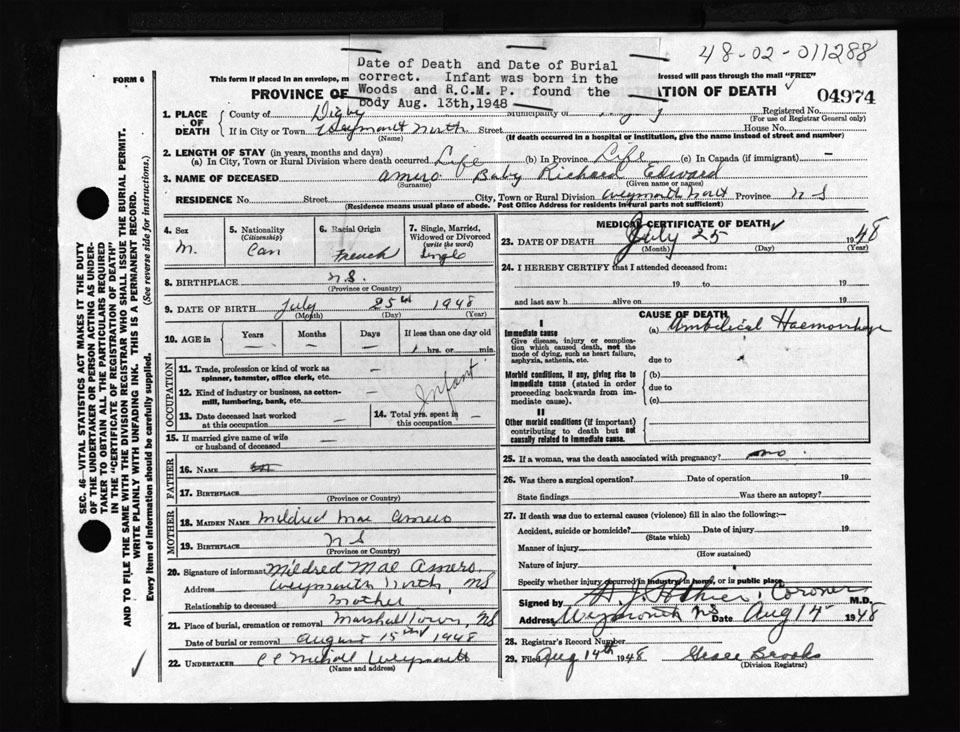 48-02-011288
Date of Death and Date of Burial
correct. Infant was born in the
Woods and R.C.M. P. found the
body Aug. 13th, 1948
FORM 6
This form if placed in an envelope, m
dressed will pass through the mail "FREE"
PROVINCE OF
ATION OF DEATH
04974
1. PLACE OF DEATH
County of Digby
Municipality of
Registered No.
(For use of Registrar General only)
If in City or Town Weymouth North Street
House No.
(Name)
(If death occurred in a hospital or institution, give the name instead of street and number)
2. LENGTH OF STAY (in years, months and days)
(a) In City, Town or Rural Division where death occurred Life (b) In Province Life (c) In Canada (if immigrant) —
3. NAME OF DECEASED Amero Baby Richard Edward
(Surname) (Given name or names)
RESIDENCE No. Street City, Town or Rural Division Weymouth North Province N S
(Residence means usual place of abode. Post Office Address for residents in rural parts not sufficient)
4. Sex
M.
5. Nationality
(Citizenship)
Can
6. Racial Origin
French
7. Single, Married,
Widowed or Divorced
(write the word)
Single
8. BIRTHPLACE N.S.
(Province or Country)
9. DATE OF BIRTH July 25 1948
(Month) (Day) (Year)
10. AGE in
Years Months Days If less than one day old
— — — 1 hrs. or min.
OCCUPATION
11. Trade, profession or kind of work as
spinner, teamster, office clerk, etc. —
12. Kind of industry or business, as cotton-
mill, lumbering, bank, etc. —
Infant
13. Date deceased last worked
at this occupation —
14. Total yrs. spent in
this occupation —
15. If married give name of wife
or husband of deceased —
FATHER
16. NAME
17. BIRTHPLACE
(Province or Country)
MOTHER
18. MAIDEN NAME Mildred Mae Amero
19. BIRTHPLACE N S
(Province or Country)
20. Signature of informant Mildred Mae Amero
Address Weymouth North, NS
Relationship to deceased Mother
21. Place of burial, cremation or removal Marshalltown, NS
Date of burial or removal August 15 1948
22. UNDERTAKER Weymouth
(Name and address)
MEDICAL CERTIFICATE OF DEATH
23. DATE OF DEATH July 25 1948
(Month) (Day) (Year)
24. I HEREBY CERTIFY that I attended deceased from:
19 to 19
and last saw h alive on 19
CAUSE OF DEATH
I
Immediate cause
Give disease, injury or complica-
tion which caused death, not the
mode of dying, such as heart failure,
asphyxia, asthenia, etc.
(a) Umbilical Haemorrhage
due to
Morbid conditions, if any, giving rise to
immediate cause (stated in order
proceeding backwards from im-
mediate cause).
(b)
due to
(c)
II
Other morbid conditions (if important)
contributing to death but not
causally related to immediate cause.
25. If a woman, was the death associated with pregnancy? no
26. Was there a surgical operation? Date of operation 19
State findings Was there an autopsy?
27. If death was due to external causes (violence) fill in also the following:—
Accident, suicide or homicide? Date of injury 19
(State which)
Manner of injury
(How sustained)
Nature of injury
Specify whether injury occurred in industry, in home, or in public place.
Signed by Coroner M.D.
Address Weymouth NS Date Aug 14 1948
28. Registrar's Record Number
29. Filed Aug 14th 1948 Grace Brooks
(Division Registrar)
SEC. 46—VITAL STATISTICS ACT MAKES IT THE DUTY
OF THE UNDERTAKER OR PERSON ACTING AS UNDER-
TAKER TO OBTAIN ALL THE PARTICULARS REQUIRED
IN THE "CERTIFICATE OF REGISTRATION OF DEATH"
AND TO FILE THE SAME WITH THE DIVISION REGISTRAR WHO SHALL ISSUE THE BURIAL PERMIT.
WRITE PLAINLY WITH UNFADING INK. THIS IS A PERMANENT RECORD.
Every item of information should be carefully supplied. (See reverse side for instructions.)